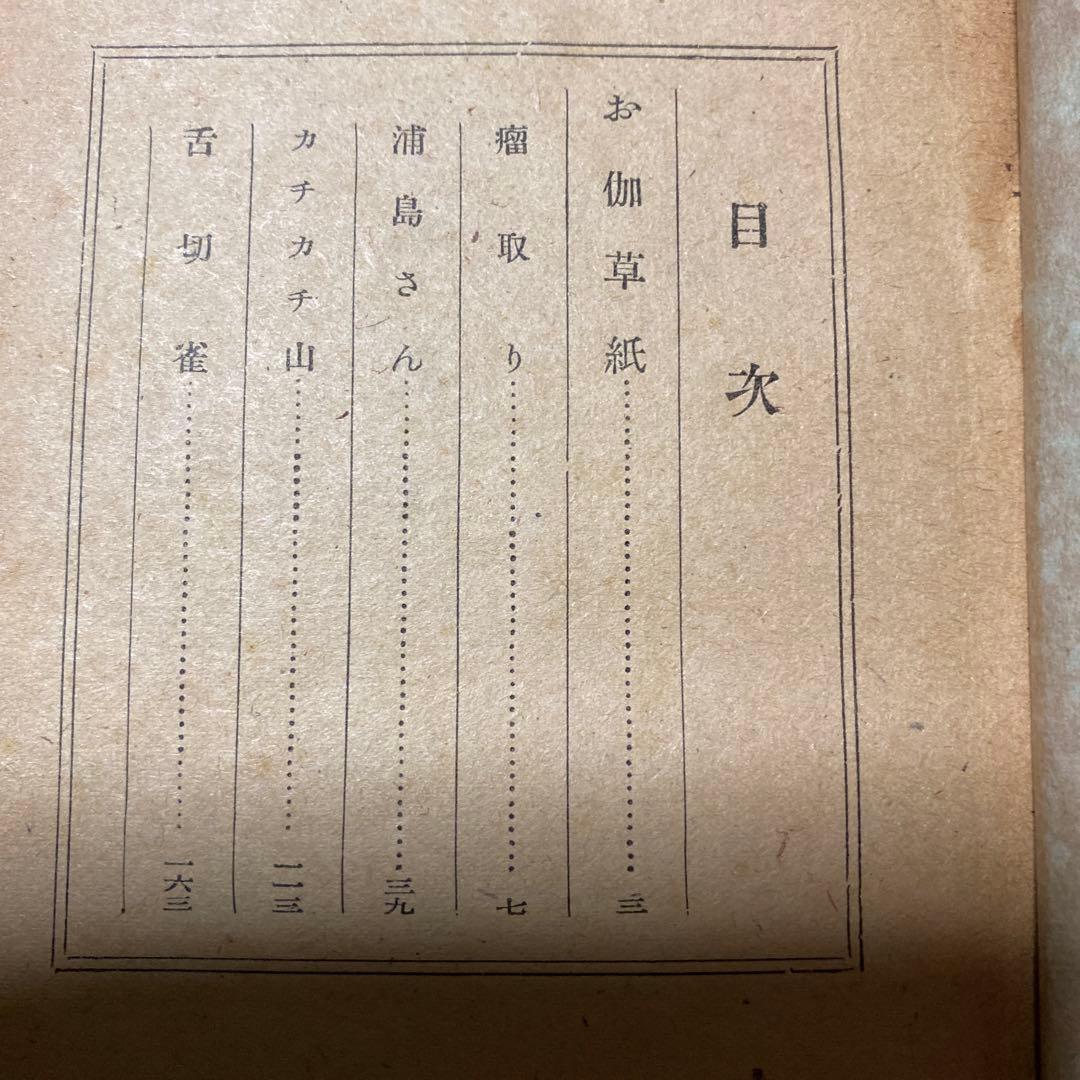 目次
お伽草紙……………………三
瘤取り……………………七
浦島さん……………………三九
カチカチ山……………………一一三
舌切雀……………………一六三